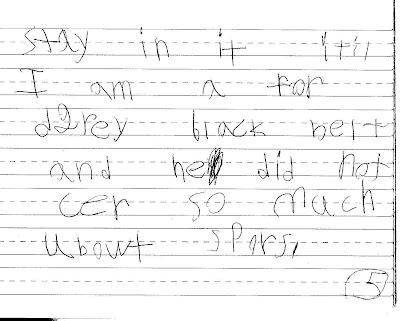 stay in it itil
I am a for
d2rey black belt
and he did not
cer so much
ubowt spors,
5